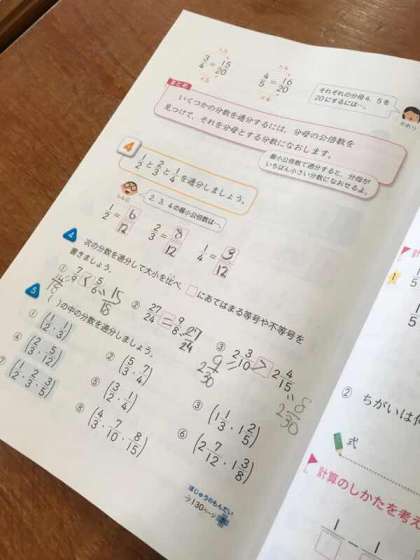 3/4 = 15/20
4/5 = 16/20
それぞれの分母4、5を
20にするには…。
まとめ
いくつかの分数を通分するには、分母の公倍数を
見つけて、それを分母とする分数になおします。
最小公倍数で通分すると、分母が
いちばん小さい分数になおせるよ。
4
1/2 と 2/3 と 1/4 を通分しましょう。
2、3、4の最小公倍数は…
1/2 = 6/12
2/3 = 8/12
1/4 = 3/12
4 次の分数を通分して大小を比べ、□にあてはまる等号や不等号を
書きましょう。
① 7/9 < 5/6
15/18
② 27/24 = 9/8
27/24
③ 2 3/10 > 2 4/15
2 9/30
2 8/30
5 ( )の中の分数を通分しましょう。
① (1/2, 1/3)
② (5/3, 7/4)
③ (1 1/3, 1 2/5)
④ (2/3, 5/12)
⑤ (3/2, 1/4)
⑥ (2 7/12, 1 3/8)
⑦ (1/2, 2/3, 3/5)
⑧ (4/3, 7/10, 8/15)
ほじゅうのもんだい
→130ページ
② ちがいは何
式
計算のしかたを考え